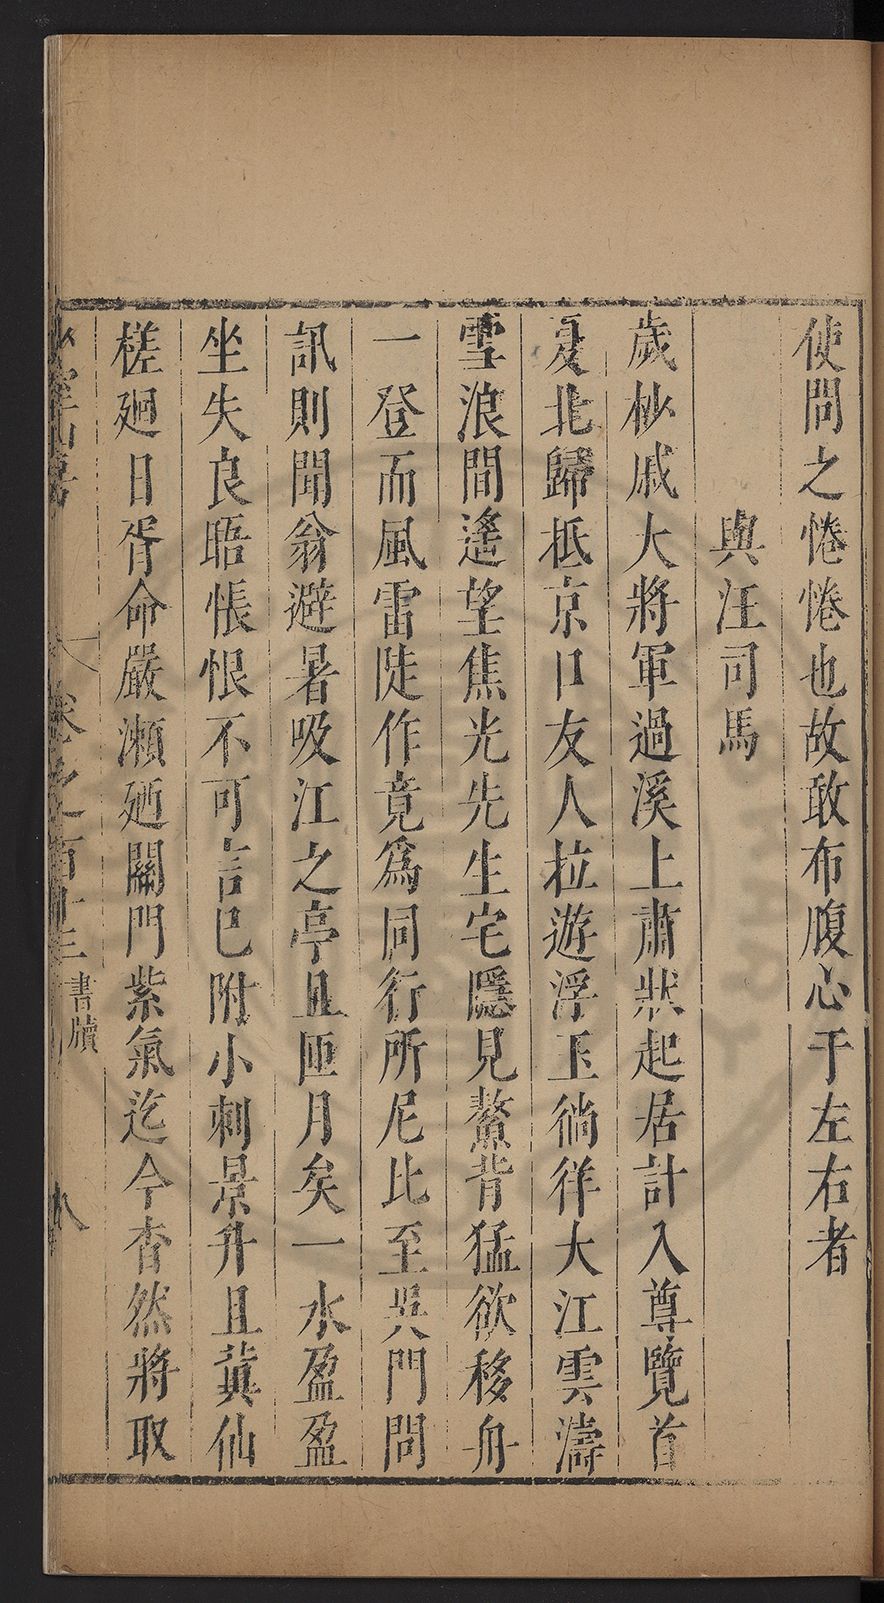 使問之惓惓也故敢布腹心于左右者
與汪司馬
歲杪戚大將軍過溪上肅狀起居計入尊覽首
夏北歸抵京口友人拉遊浮玉徜徉大江雲濤
雪浪間遙望焦光先生宅隱見鰲背猛欲移舟
一登而風雷陡作竟為同行所尼比至吳門問
訊則聞翁避暑吸江之亭且匝月矣一水盈盈
坐失良晤悵恨不可言已附小刺景升且冀仙
槎廻日胥命嚴瀨廼關門紫氣迄今杳然將取
卷之百十三 書牘 八